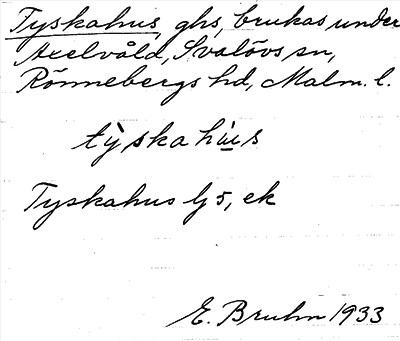 Tyskahus, ghs, brukas under
Axelvåld, Svalövs sn,
Rönnebergs hd, Malm. l.
Tyskahus lj 5, ek
E. Bruhn 1933